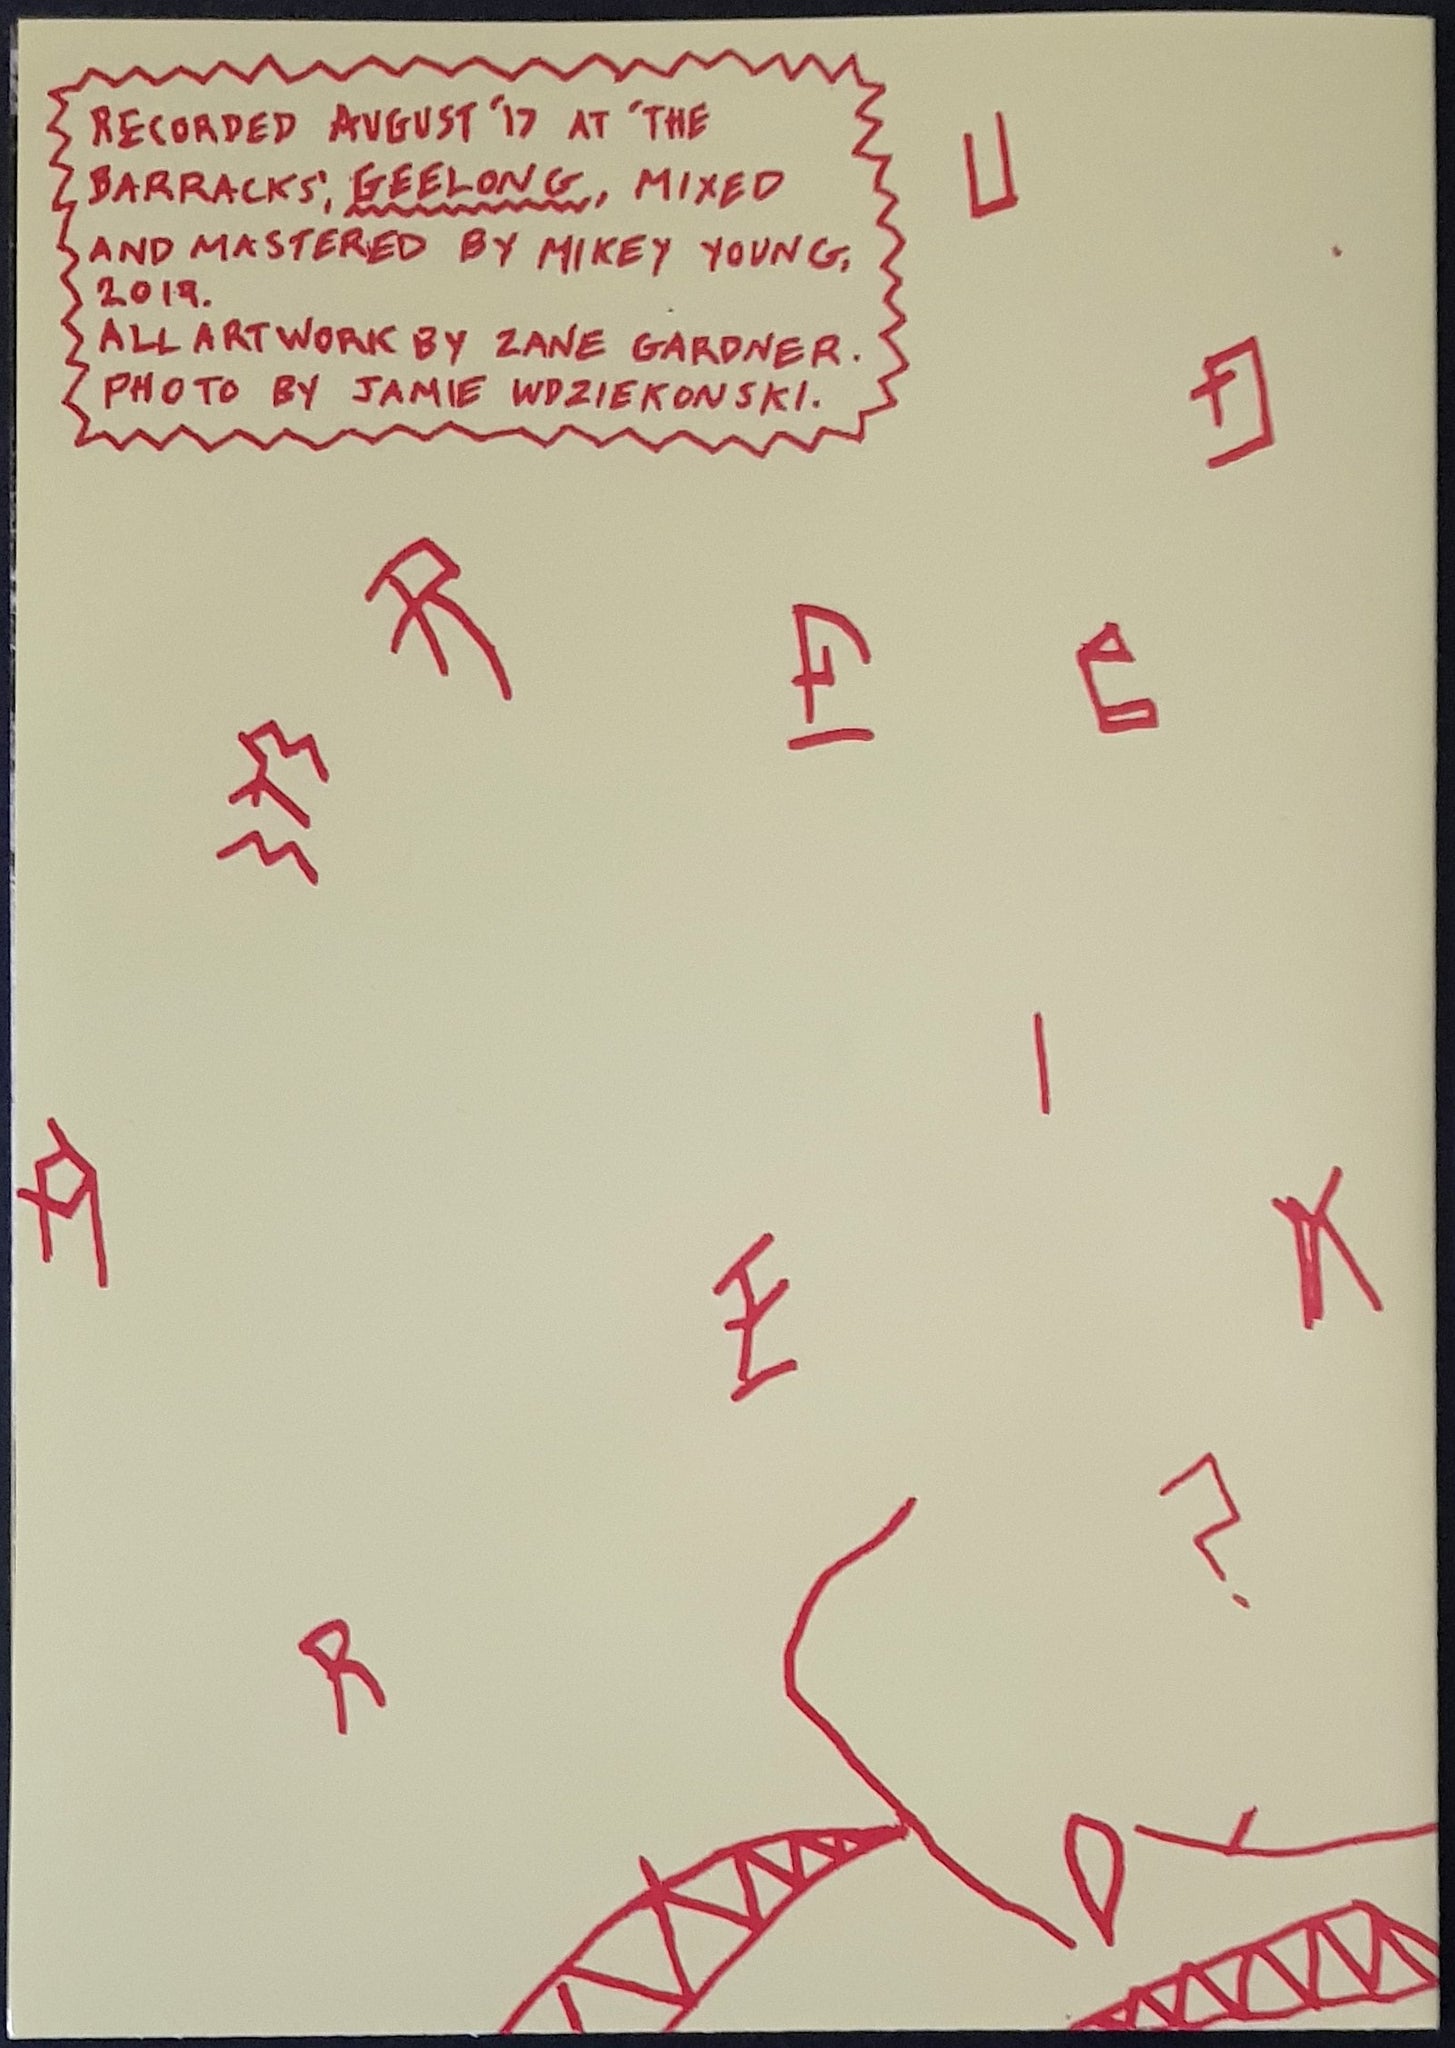 RECORDED AUGUST '17 AT 'THE
BARRACKS', GEELONG, MIXED
AND MASTERED BY MIKEY YOUNG,
2019.
ALL ARTWORK BY ZANE GARDNER.
PHOTO BY JAMIE WDZIEKONSKI.
U
R
E
I
K
E
?
R